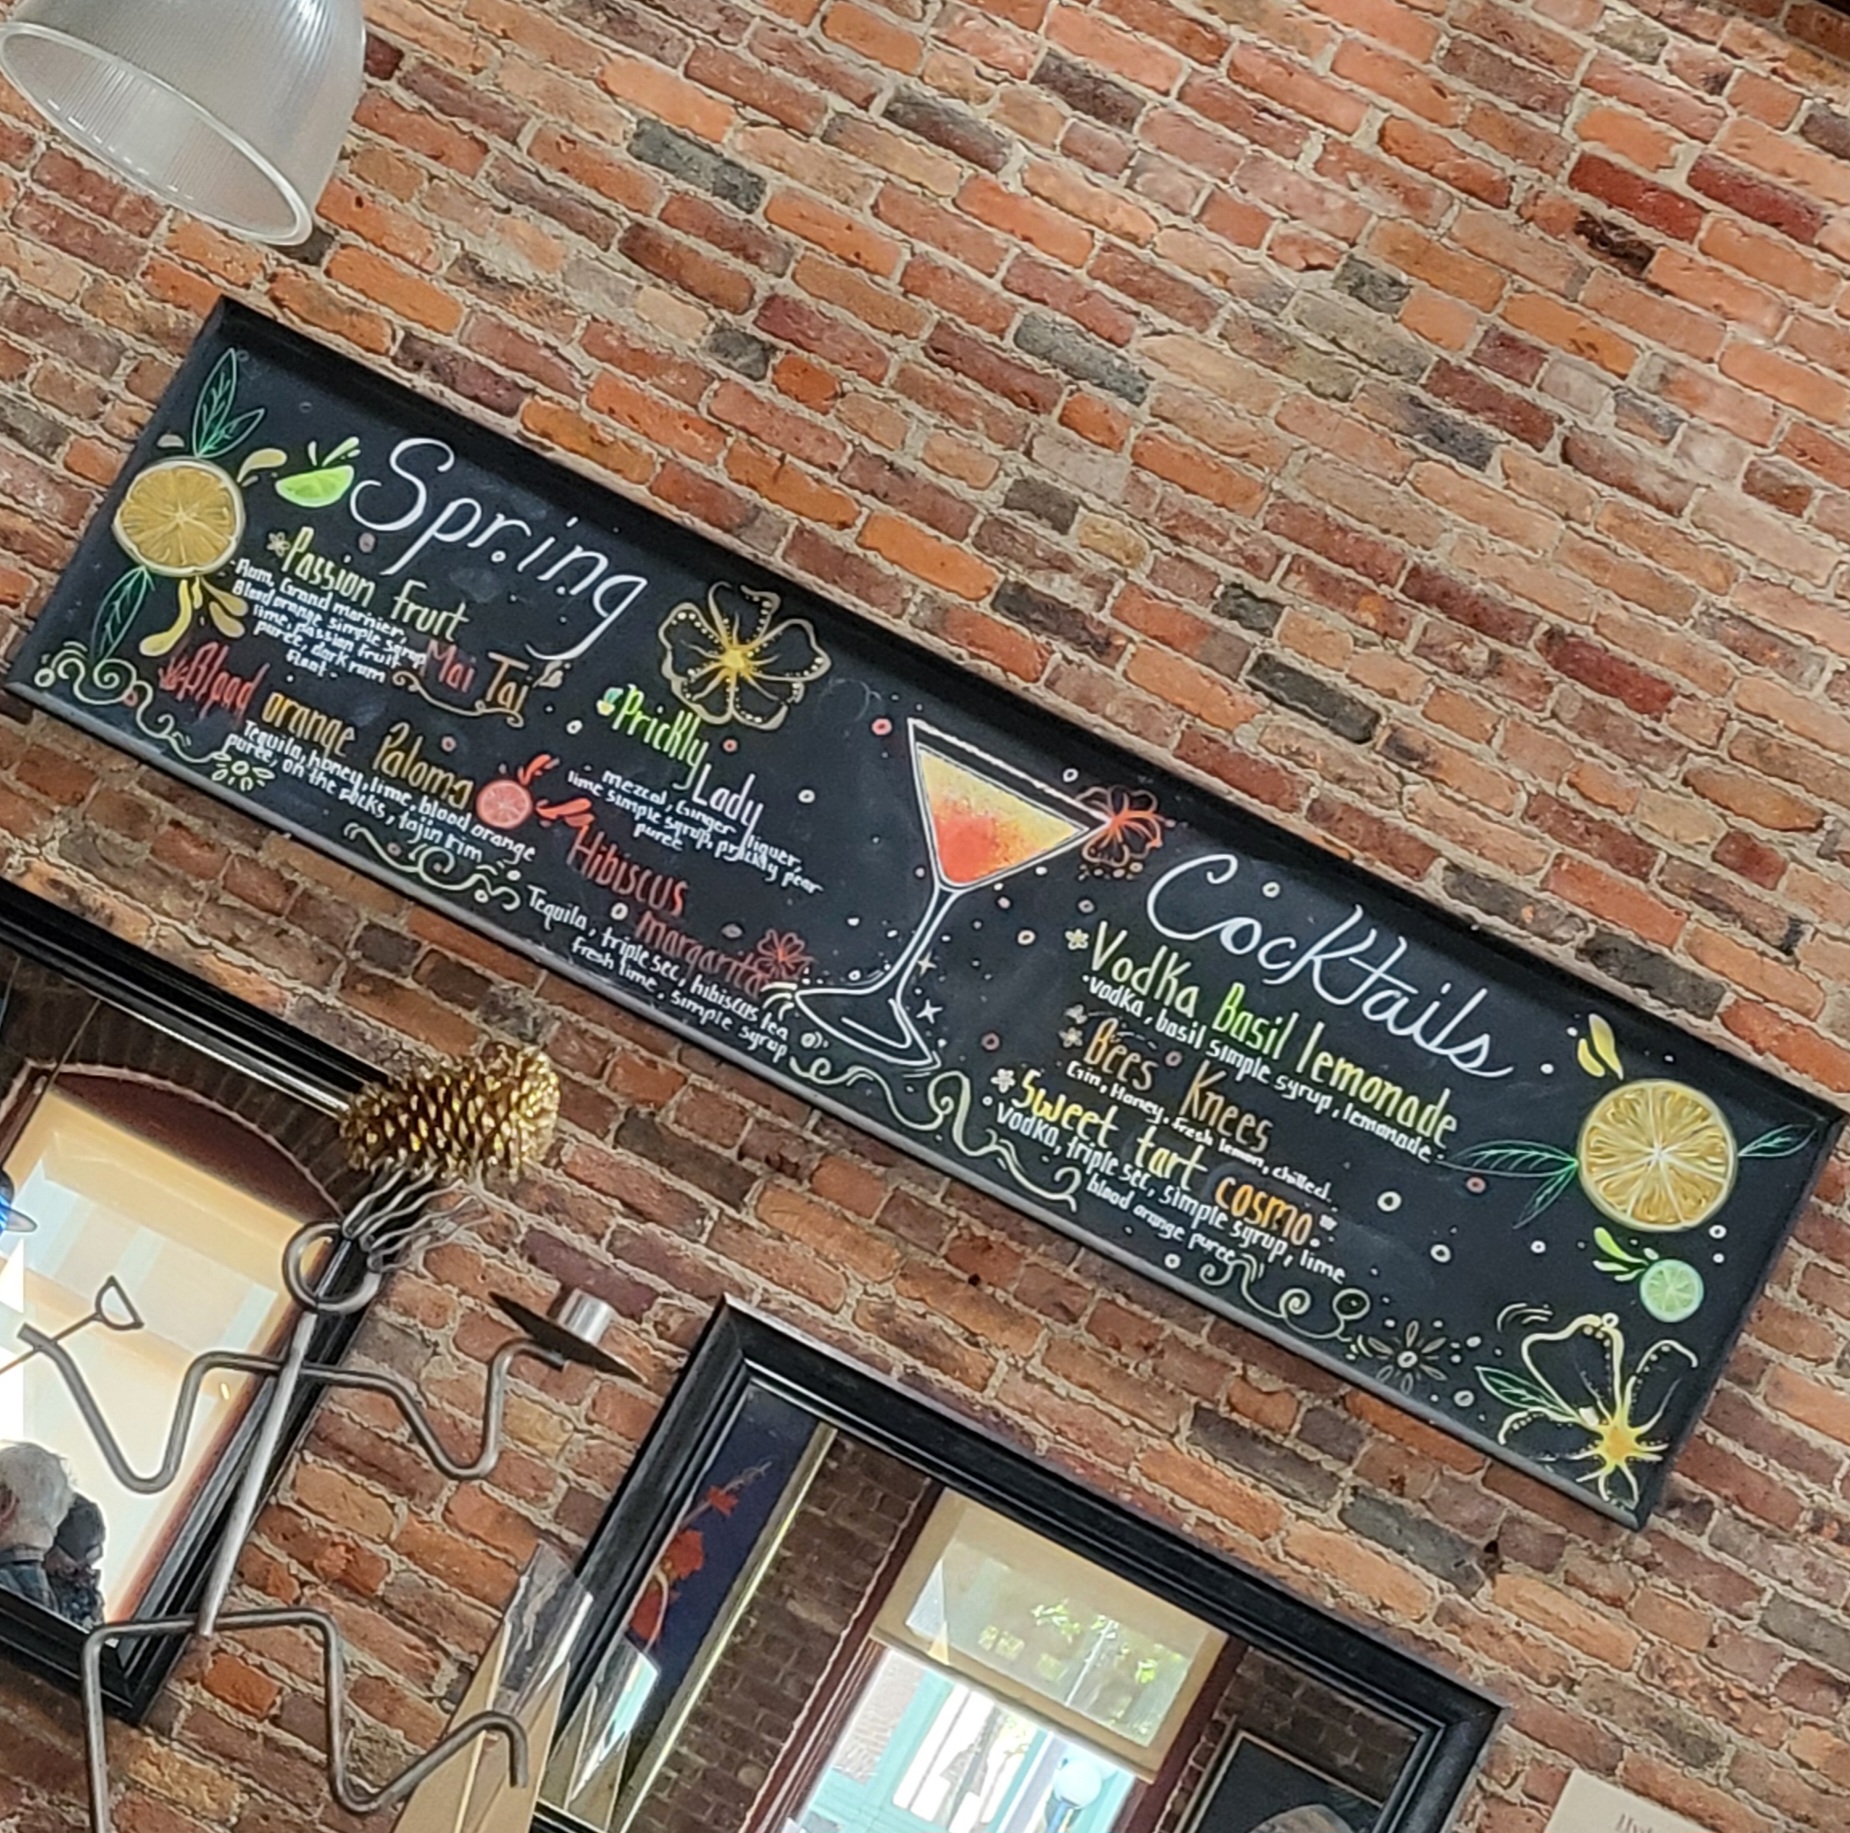 Spring
Passion fruit
Mai Tai
-Rum, Grand marnier,
Blood orange simple syrup
lime, passion fruit
puree, dark rum
float -
Blood orange Paloma
Tequila, honey, lime, blood orange
puree, on the rocks, tajin rim
Prickly
Lady
mezcal, Ginger liquer,
lime simple syrup, prickly pear
puree
Hibiscus
margarita
Tequila, triple sec, hibiscus tea
fresh lime, simple syrup
Cocktails
Vodka Basil lemonade
·vodka, basil simple syrup, lemonade·
Bees Knees
Gin, Honey, fresh lemon, chilled.
Sweet tart cosmo
·vodka, triple sec, simple syrup, lime
blood orange puree